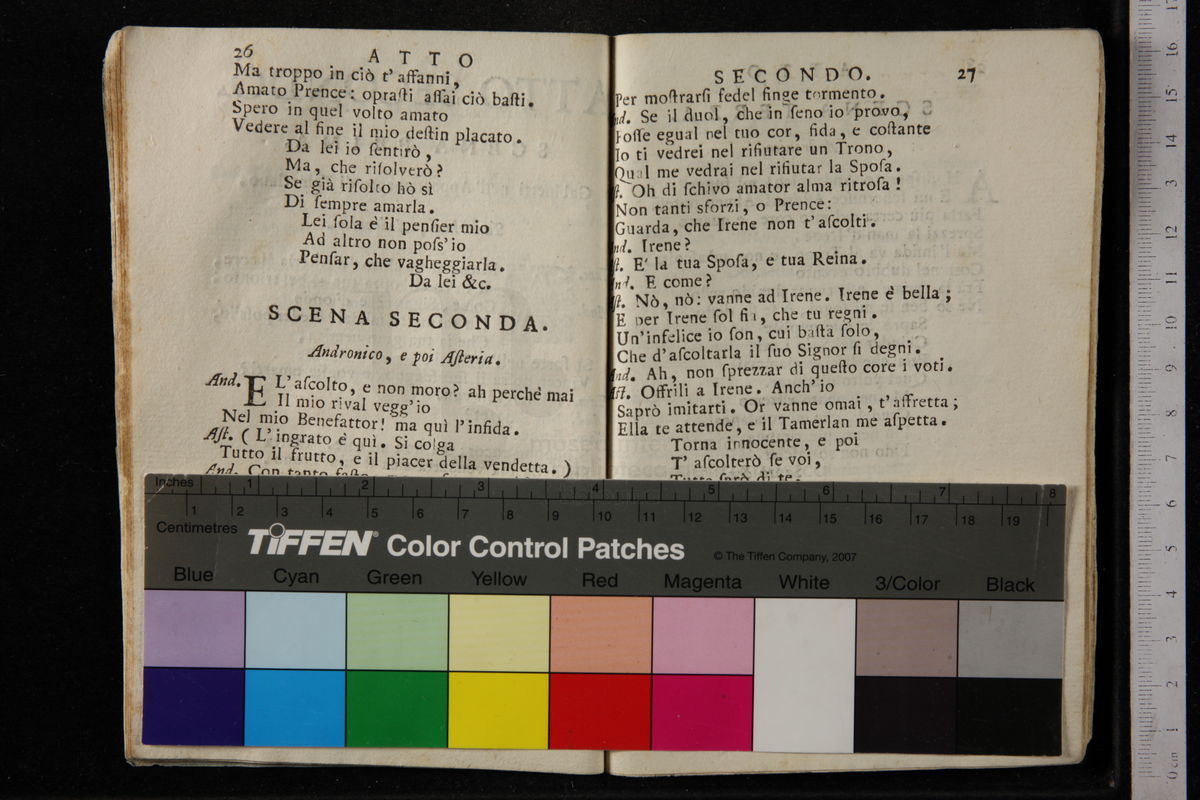 26
ATTO
Ma troppo in ciò t' affanni,
Amato Prence: opraſti aſſai ciò baſti.
Spero in quel volto amato
Vedere al fine il mio deſtin placato.
Da lei io ſentirò,
Ma, che riſolverò?
Se già riſolto hò sì
Di ſempre amarla.
Lei ſola è il penſier mio
Ad altro non poſs' io
Penſar, che vagheggiarla.
Da lei &c.
SCENA SECONDA.
Andronico, e poi Aſteria.
And. E L'aſcolto, e non moro? ah perchè mai
Il mio rival vegg'io
Nel mio Benefattor! ma quì l'infida.
Aſt. ( L'ingrato è quì. Si colga
Tutto il frutto, e il piacer della vendetta. )
And. Con tanto
SECONDO.
27
Per moſtrarſi fedel finge tormento.
nd. Se il duol, che in ſeno io provo,
Foſſe egual nel tuo cor, fida, e coſtante
Io ti vedrei nel rifiutare un Trono,
Qual me vedrai nel rifiutar la Spoſa.
ſt. Oh di ſchivo amator alma ritroſa!
Non tanti sforzi, o Prence:
Guarda, che Irene non t'aſcolti.
nd. Irene?
ſt. E' la tua Spoſa, e tua Reina.
nd. E come?
ſt. Nò, nò: vanne ad Irene. Irene è bella;
E per Irene ſol fia, che tu regni.
Un'infelice io ſon, cui baſta ſolo,
Che d'aſcoltarla il ſuo Signor ſi degni.
And. Ah, non ſprezzar di queſto core i voti.
Aſt. Offrili a Irene. Anch'io
Saprò imitarti. Or vanne omai, t'affretta;
Ella te attende, e il Tamerlan me aſpetta.
Torna innocente, e poi
T' aſcolterò ſe voi,
Tutta ſarò di te.
Inches 1 2 3 4 5 6 7 8
1 2 3 4 5 6 7 8 9 10 11 12 13 14 15 16 17 18 19
Centimetres
TIFFEN® Color Control Patches
© The Tiffen Company, 2007
Blue Cyan Green Yellow Red Magenta White 3/Color Black
0 cm 1 2 3 4 5 6 7 8 9 10 11 12 13 14 15 16 17